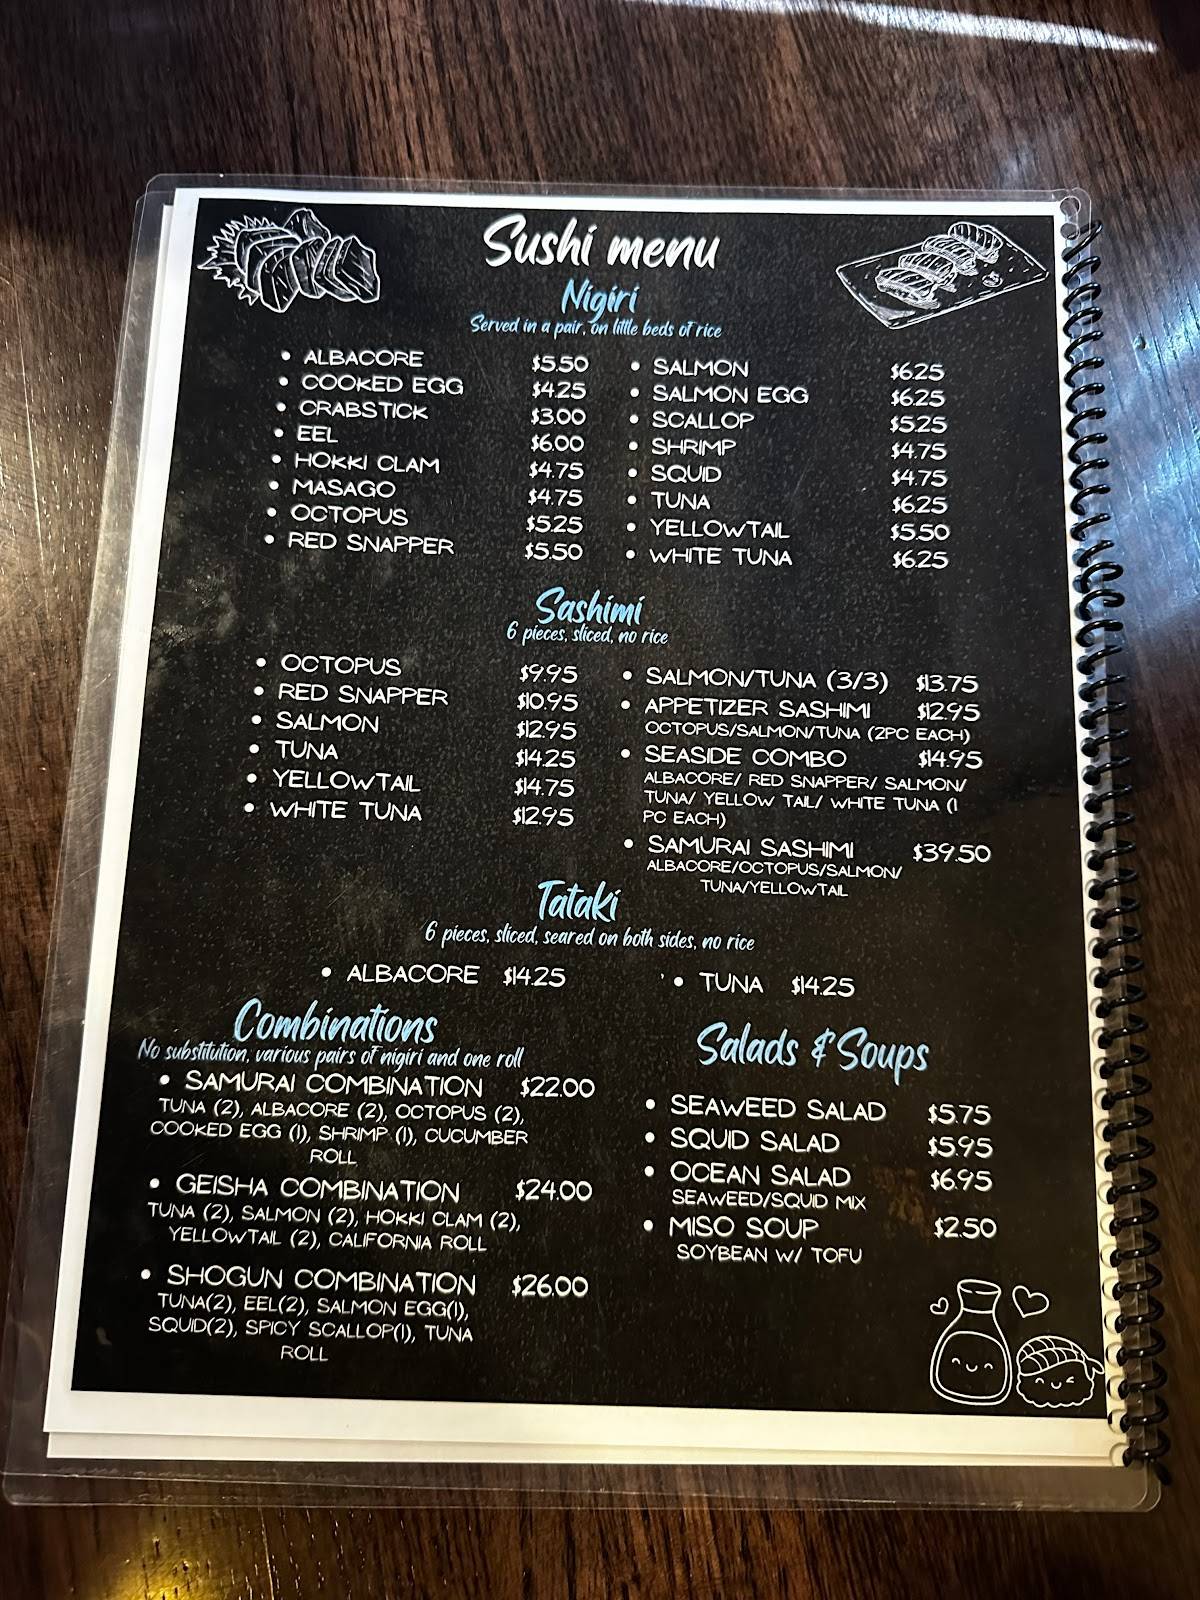 Sushi menu
Nigiri
Served in a pair, on little beds of rice
• ALBACORE $5.50
• COOKED EGG $4.25
• CRABSTICK $3.00
• EEL $6.00
• HOKKI CLAM $4.75
• MASAGO $4.75
• OCTOPUS $5.25
• RED SNAPPER $5.50
• SALMON $6.25
• SALMON EGG $6.25
• SCALLOP $5.25
• SHRIMP $4.75
• SQUID $4.75
• TUNA $6.25
• YELLOWTAIL $5.50
• WHITE TUNA $6.25
Sashimi
6 pieces, sliced, no rice
• OCTOPUS $9.95
• RED SNAPPER $10.95
• SALMON $12.95
• TUNA $14.25
• YELLOWTAIL $14.75
• WHITE TUNA $12.95
• SALMON/TUNA (3/3) $13.75
• APPETIZER SASHIMI $12.95
OCTOPUS/SALMON/TUNA (2PC EACH)
• SEASIDE COMBO $14.95
ALBACORE/ RED SNAPPER/ SALMON/
TUNA/ YELLOW TAIL/ WHITE TUNA (1
PC EACH)
• SAMURAI SASHIMI $39.50
ALBACORE/OCTOPUS/SALMON/
TUNA/YELLOWTAIL
Tataki
6 pieces, sliced, seared on both sides, no rice
• ALBACORE $14.25
• TUNA $14.25
Combinations
No substitution, various pairs of nigiri and one roll
• SAMURAI COMBINATION $22.00
TUNA (2), ALBACORE (2), OCTOPUS (2),
COOKED EGG (1), SHRIMP (1), CUCUMBER
ROLL
• GEISHA COMBINATION $24.00
TUNA (2), SALMON (2), HOKKI CLAM (2),
YELLOWTAIL (2), CALIFORNIA ROLL
• SHOGUN COMBINATION $26.00
TUNA(2), EEL(2), SALMON EGG(1),
SQUID(2), SPICY SCALLOP(1), TUNA
ROLL
Salads & Soups
• SEAWEED SALAD $5.75
• SQUID SALAD $5.95
• OCEAN SALAD $6.95
SEAWEED/SQUID MIX
• MISO SOUP $2.50
SOYBEAN W/ TOFU